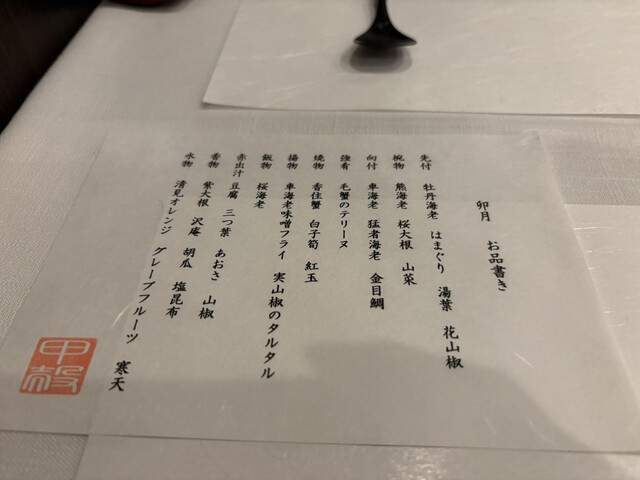 卯月　お品書き
先付　牡丹海老　はまぐり　湯葉　花山椒
椀物　熊海老　桜大根　山菜
向付　車海老　猛者海老　金目鯛
強肴　毛蟹のテリーヌ
焼物　香住蟹　白子筍　紅玉
揚物　車海老味噌フライ　実山椒のタルタル
飯物　桜海老
赤出汁　豆腐　三つ葉　あおさ　山椒
香物　紫大根　沢庵　胡瓜　塩昆布
水物　清見オレンジ　グレープフルーツ　寒天
甲殻